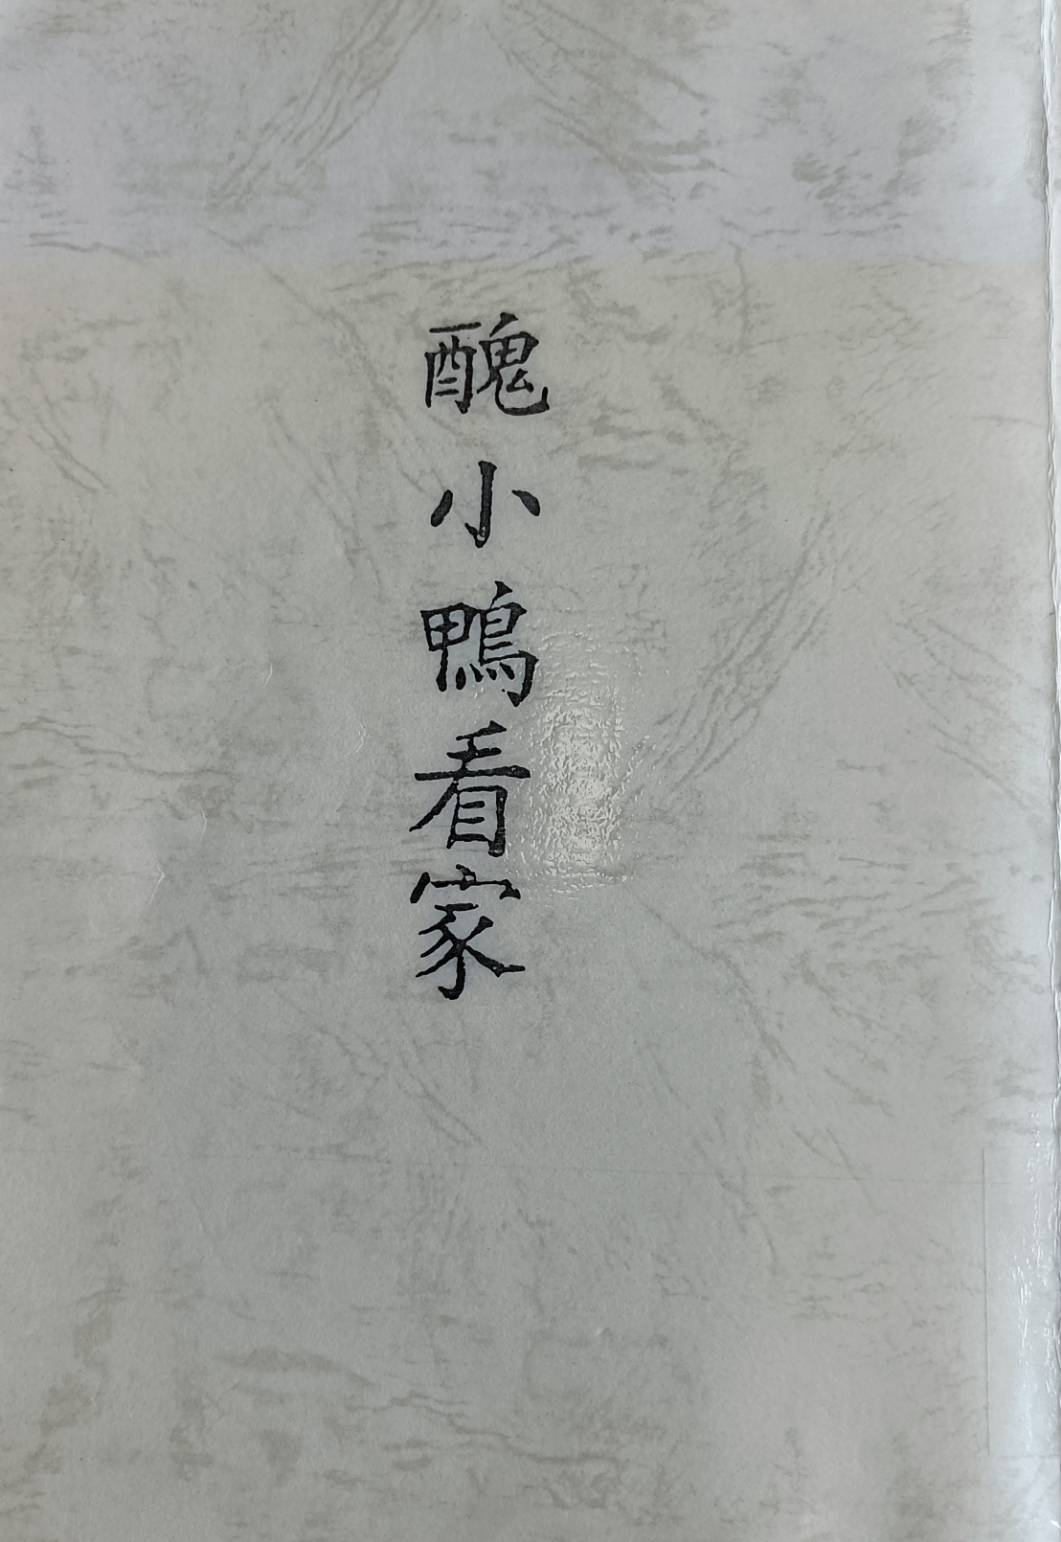 醜小鴨看家